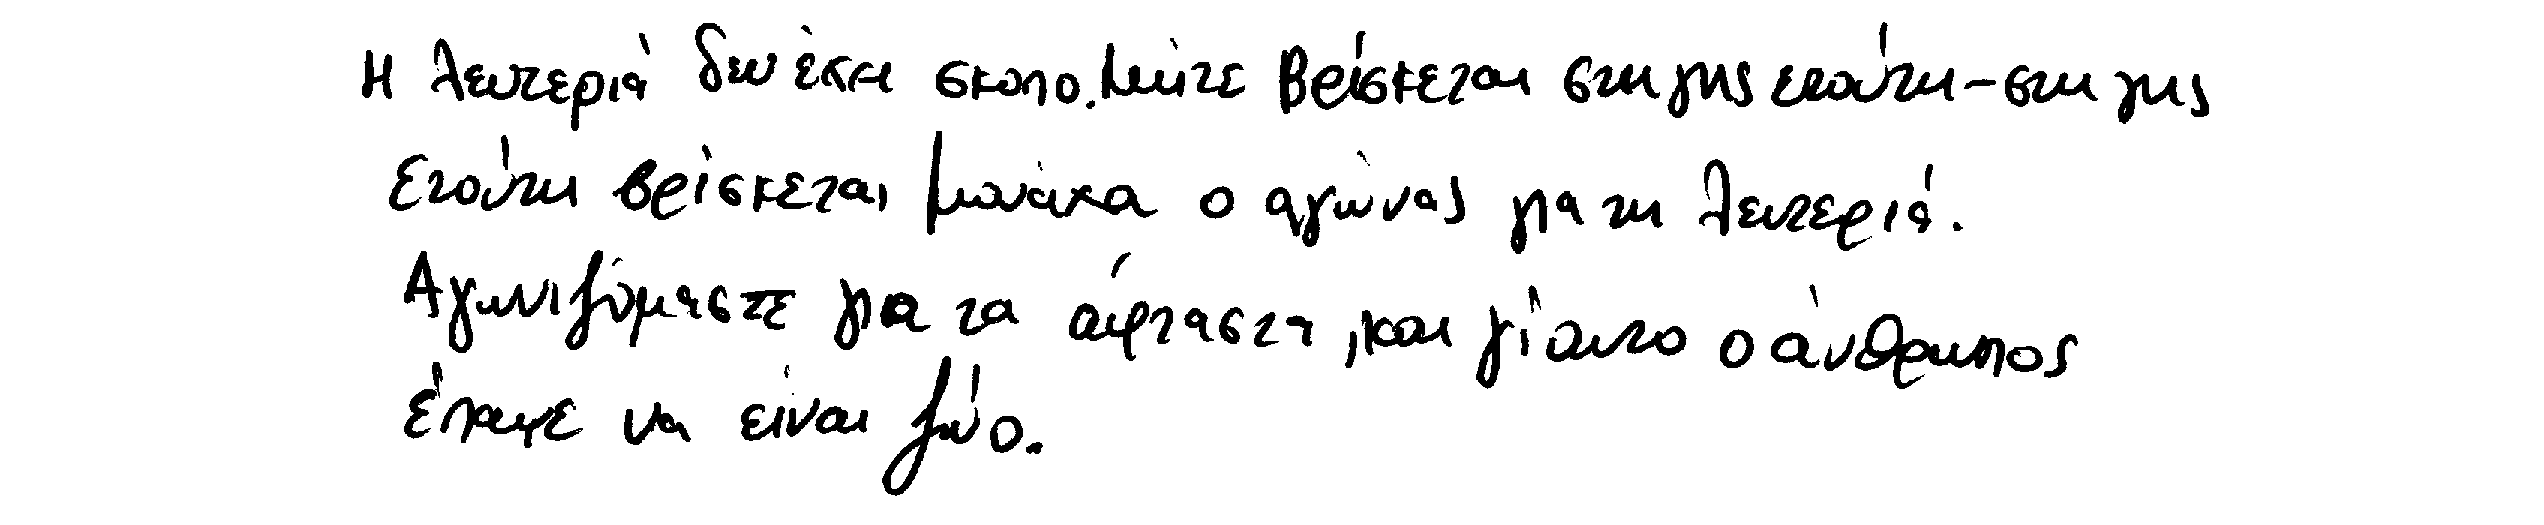 Η λευτεριά δεν έχει σκοπό. Μήτε βρίσκεται στη γης ετούτη - στη γης
ετούτη βρίσκεται μονάχα ο αγώνας για τη λευτεριά.
Αγωνιζόμαστε για τα άφταστα, και γι αυτό ο άνθρωπος
έπαψε να είναι ζώο.